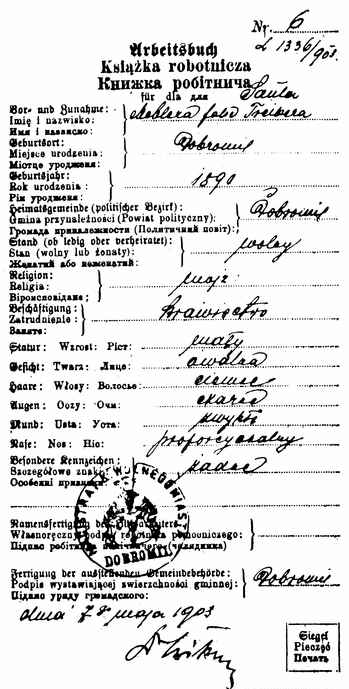 Nr. 6
L 1336/903.
Arbeitsbuch
Książka robotnicza
Книжка робітнича
für dla для Saula
Vor- und Zunahme:
Imię i nazwisko:
Имя і назвиско:
Geburtsort: Dobromil
Miejsce urodzenia:
Містце уродженя:
Geburtsjahr: 1890
Rok urodzenia:
Рік уродженя:
Heimatsgemeinde (politischer Bezirk): Dobromil
Gmina przynależności (Powiat polityczny):
Громада приналежности (Політичний повіт):
Stand (ob ledig oder verheiratet): wolny
Stan (wolny lub żonaty):
Женатий або неженатий:
Religion: mojż
Religia:
Віроисповідане:
Beschäftigung: krawiectwo
Zatrudnienie:
Заняте:
Statur: Wzrost: Ріст: mały
Gesicht: Twarz: Лице: owalna
Haare: Włosy: Волосье: ciemne
Augen: Oczy: Очи: czarne
Mund: Usta: Уста: zwykłe
Nase: Nos: Ніс: proporcyonalny
Besondere Kennzeichen: żadne
Szczegółowe znaki:
Особенні
DOBROMIL
Namensfertigung des
Własnoręczny podpis robotnika pomocniczego:
Підпис
Fertigung der ausstellenden Gemeindebehörde: Dobromil
Podpis wystawiającej zwierzchności gminnej:
Підпис уряду громадского:
dnia 28 maja 1903
Siegel
Pieczęć
Печать